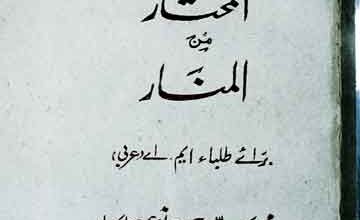 المختار
مِن
المنَار
برَائے طلباء ایم۔ اے (عربی)